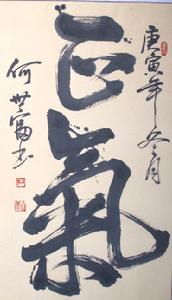 庚寅年冬月
正氣
何世富书